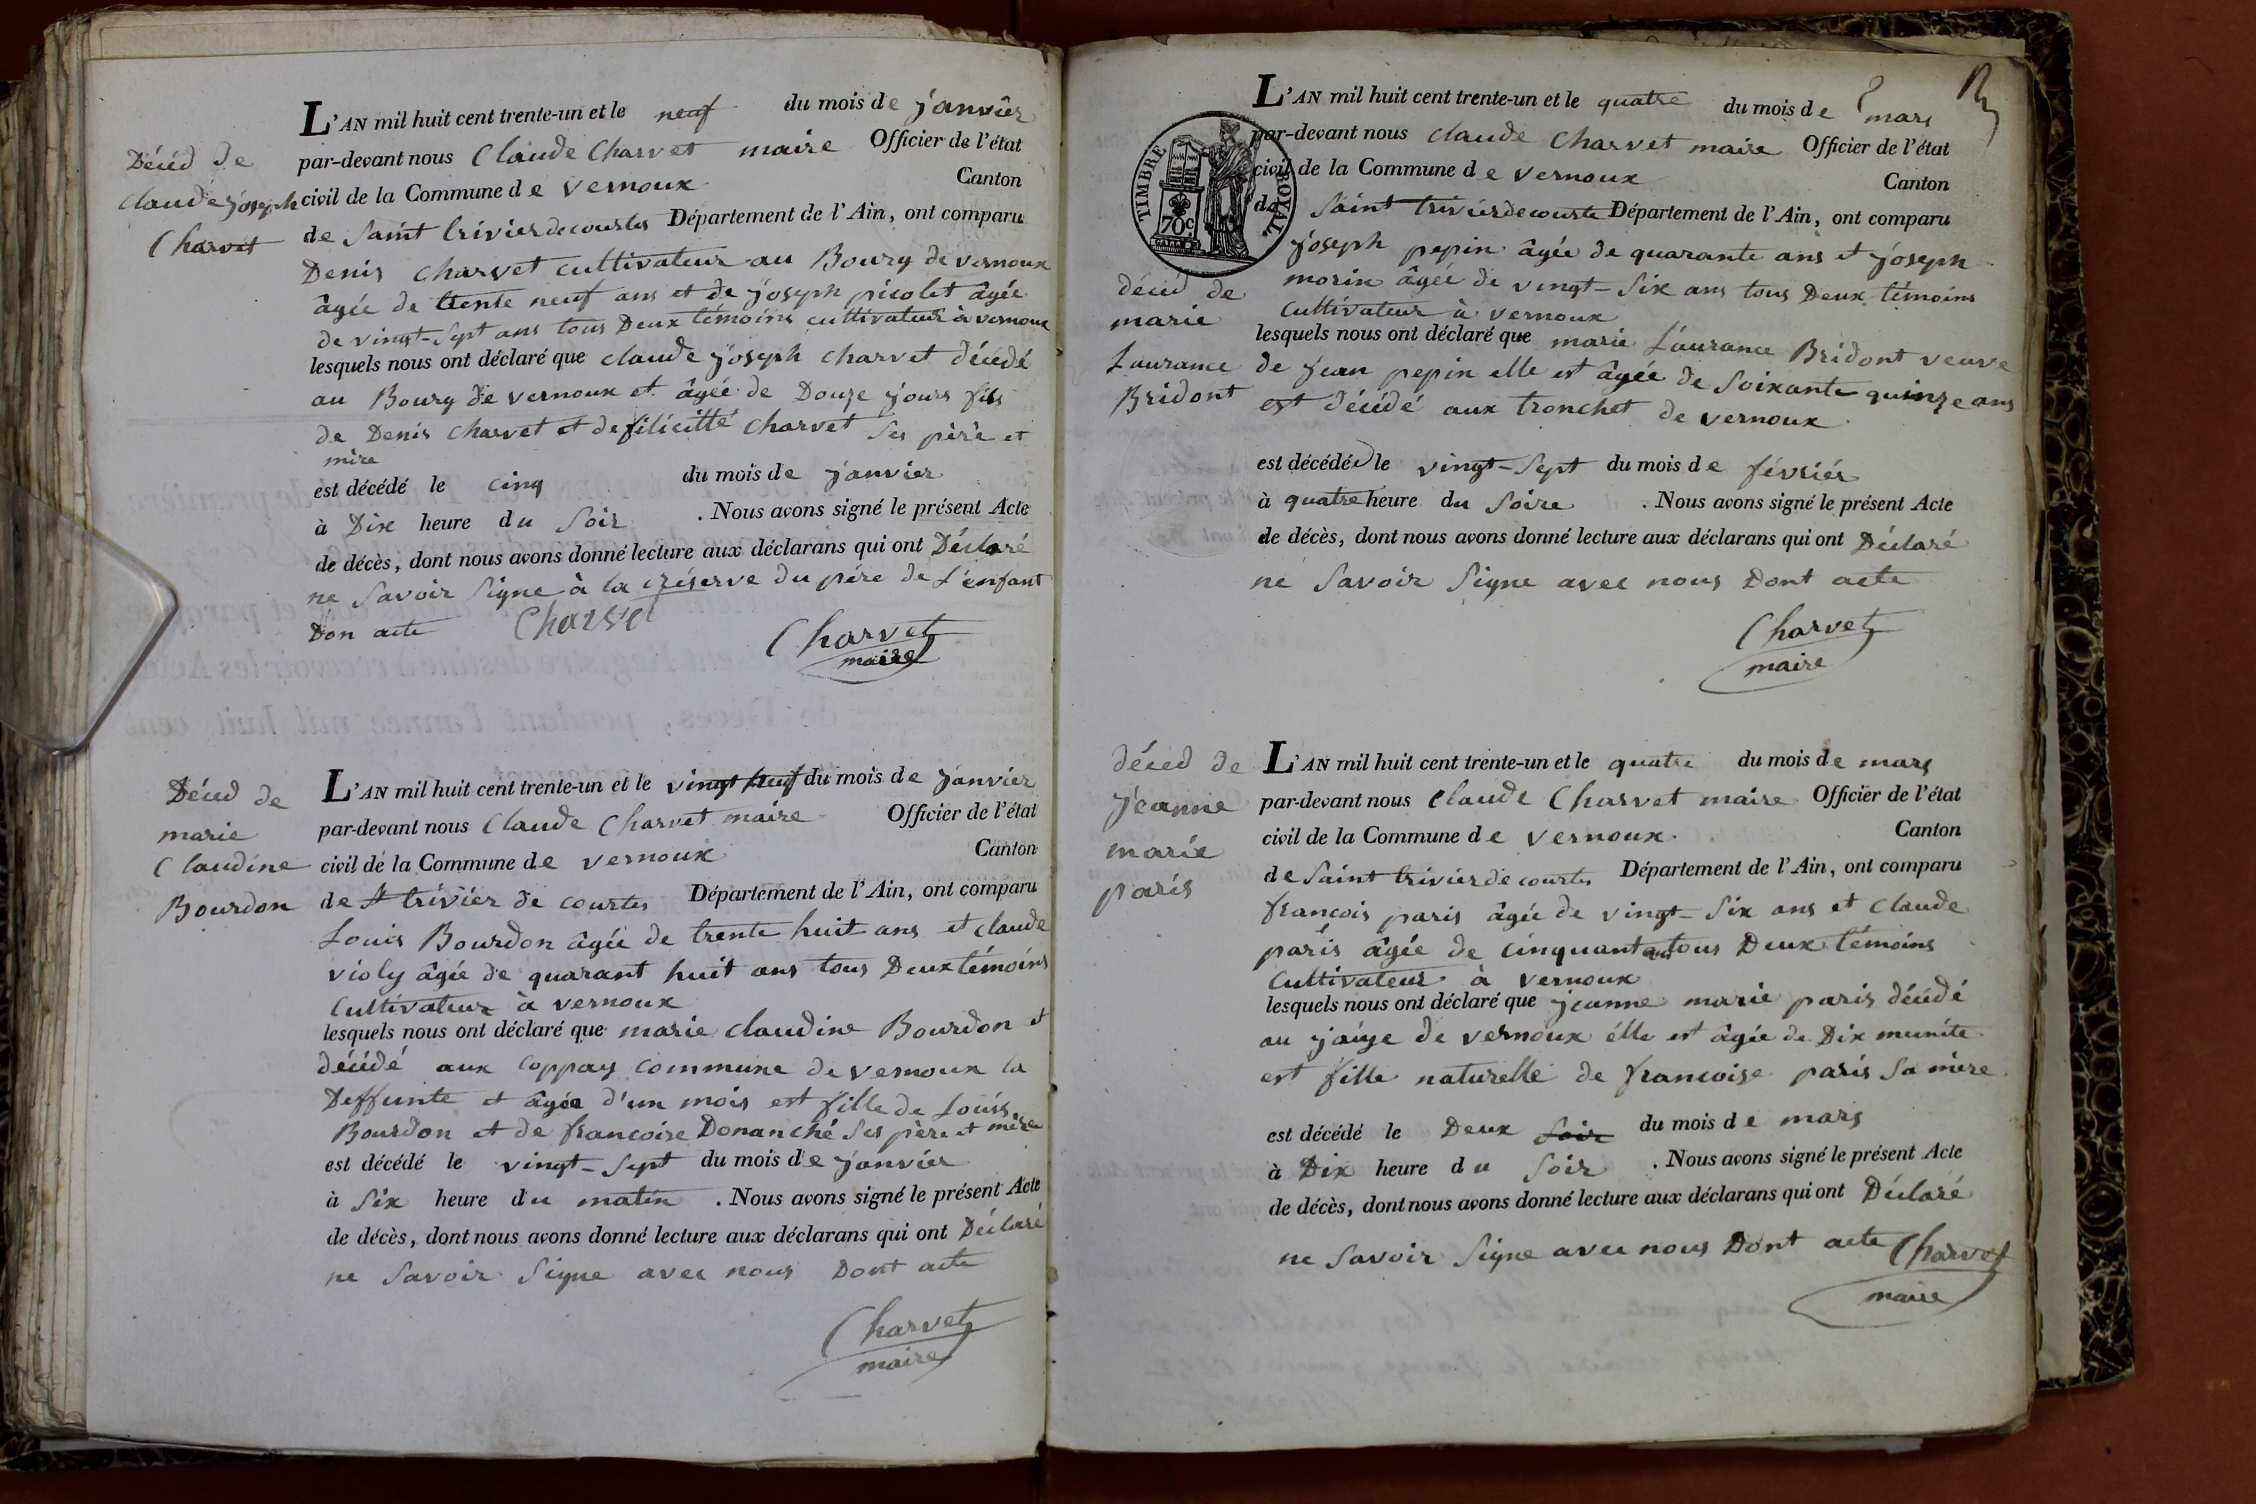 Décéd de
claude joseph
Charvet
L'AN mil huit cent trente-un et le neuf du mois de janvier
par-devant nous Claude Charvet maire Officier de l'état
civil de la Commune de vernoux Canton
de Saint trivier de courtes Département de l'Ain, ont comparu
Denis charvet cultivateur au Bourg de vernoux
âgée de trente neuf ans et de joseph picolet âgée
de vingt-sept ans tous Deux témoins cultivateur à vernoux
lesquels nous ont déclaré que claude joseph charvet décédé
au Bourg de vernoux et âgée de Douze jours fils
de Denis charvet et de filicitté charvet ses père et
mère
est décédé le cinq du mois de janvier
à Dix heure du Soir . Nous avons signé le présent Acte
de décès, dont nous avons donné lecture aux déclarans qui ont Déclaré
ne Savoir Signe à la réserve du père de L'enfant
Don acte Charvet
Charvet
maire
Décéd de
marie
Claudine
Bourdon
L'AN mil huit cent trente-un et le vingt neuf du mois de janvier
par-devant nous Claude Charvet maire Officier de l'état
civil de la Commune de vernoux Canton
de St trivier de courtes Département de l'Ain, ont comparu
Louis Bourdon âgée de trente huit ans et claude
violy âgée de quarant huit ans tous Deux témoins
Cultivateur à vernoux
lesquels nous ont déclaré que marie claudine Bourdon et
décédé aux coppays commune de vernoux la
Deffunte et âgée d'un mois est fille de Louis
Bourdon et de francoise Donanché ses père et mère
est décédé le vingt-sept du mois de janvier
à Six heure du matin . Nous avons signé le présent Acte
de décès, dont nous avons donné lecture aux déclarans qui ont Déclaré
ne Savoir Signe avec nous Dont acte
Charvet
maire
TIMBRE ROYAL
70c
décéd de
marie
Laurance
Bridont
L'AN mil huit cent trente-un et le quatre du mois de mars
par-devant nous claude Charvet maire Officier de l'état
civil de la Commune de vernoux Canton
de Saint trivier de courte Département de l'Ain, ont comparu
joseph pepin âgée de quarante ans et joseph
morin âgée de vingt-Six ans tous Deux témoins
Cultivateur à vernoux
lesquels nous ont déclaré que marie Laurance Bridont veuve
de jean pepin elle est âgée de Soixante quinze ans
est décédé aux tronchet de vernoux
est décédée le vingt-Sept du mois de févriér
à quatre heure du Soire . Nous avons signé le présent Acte
de décès, dont nous avons donné lecture aux déclarans qui ont Déclaré
ne Savoir Signe avec nous Dont acte
Charvet
maire
décéd de
jeanne
marie
paris
L'AN mil huit cent trente-un et le quatre du mois de mars
par-devant nous Claude Charvet maire Officier de l'état
civil de la Commune de vernoux Canton
de Saint trivier de courtes Département de l'Ain, ont comparu
françois paris âgée de vingt-Six ans et claude
paris âgée de cinquant ans tous Deux témoins
Cultivateur à vernoux
lesquels nous ont déclaré que jeanne marie paris décédé
au de vernoux élle est âgée de Dix munite
est fille naturelle de francoise paris Sa mère
est décédé le Deux Soir du mois de mars
à Dix heure du Soir . Nous avons signé le présent Acte
de décès, dont nous avons donné lecture aux déclarans qui ont Déclaré
ne Savoir Signe avec nous Dont acte Charvet
maire